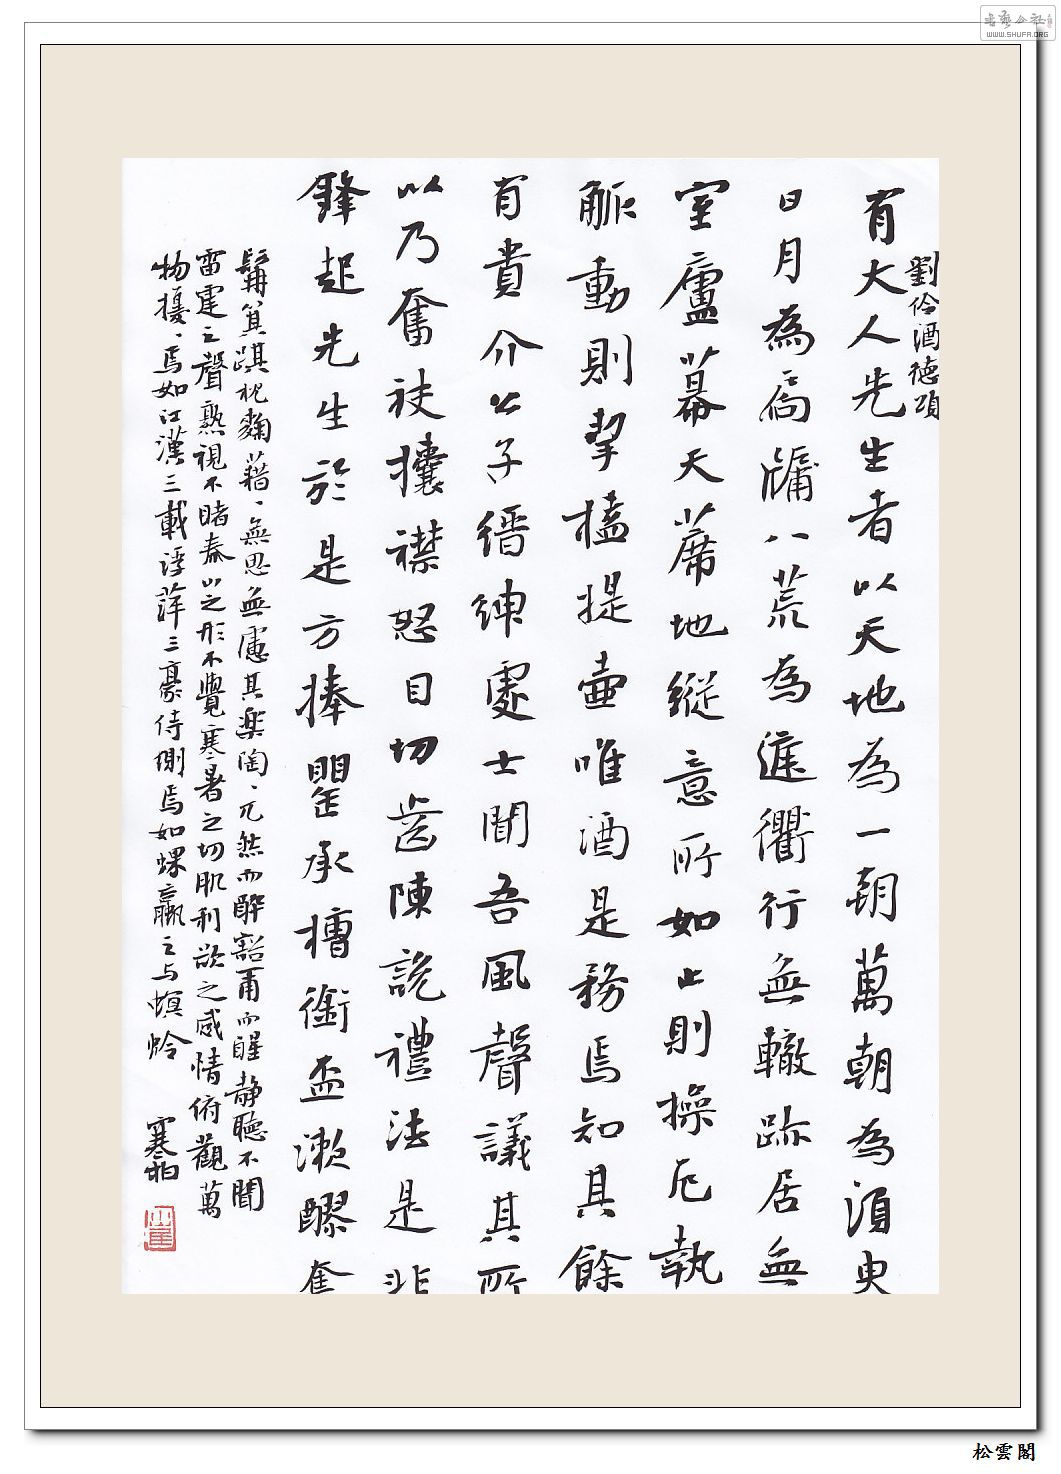 書藝公社
WWW.SHUFA.ORG
劉伶酒德頌
有大人先生者以天地為一朝萬朝為須臾
日月為扃牖八荒為庭衢行無轍跡居無
室廬幕天席地縱意所如止則操卮執
觚動則挈榼提壺唯酒是務焉知其餘
有貴介公子縉紳處士聞吾風聲議其所
以乃奮袂攘襟怒目切齒陳說禮法是非
鋒起先生於是方捧罌承槽銜盃漱醪奮
髯箕踞枕麴藉、無思無慮其樂陶、兀然而醉豁爾而醒靜聽不聞
雷霆之聲熟視不睹泰山之形不覺寒暑之切肌利欲之感情俯觀萬
物擾、焉如江漢三載浮萍三豪侍側焉如蜾蠃之与螟蛉
寒柏
松雲閣